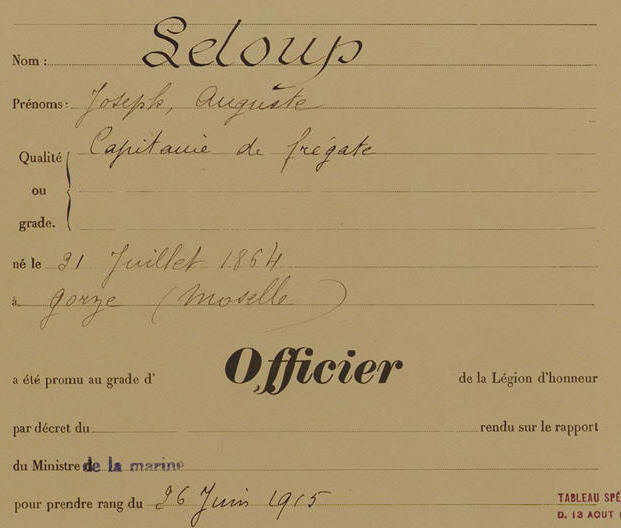 Nom : Leloup
Prénoms : Joseph, Auguste
Qualité ou grade. Capitaine de frégate
né le 21 Juillet 1864
à Gorze (Moselle)
a été promu au grade d' Officier de la Légion d'honneur
par décret du rendu sur le rapport
du Ministre de la marine
pour prendre rang du 26 Juin 1915
TABLEAU SPÉ
D. 13 AOUT